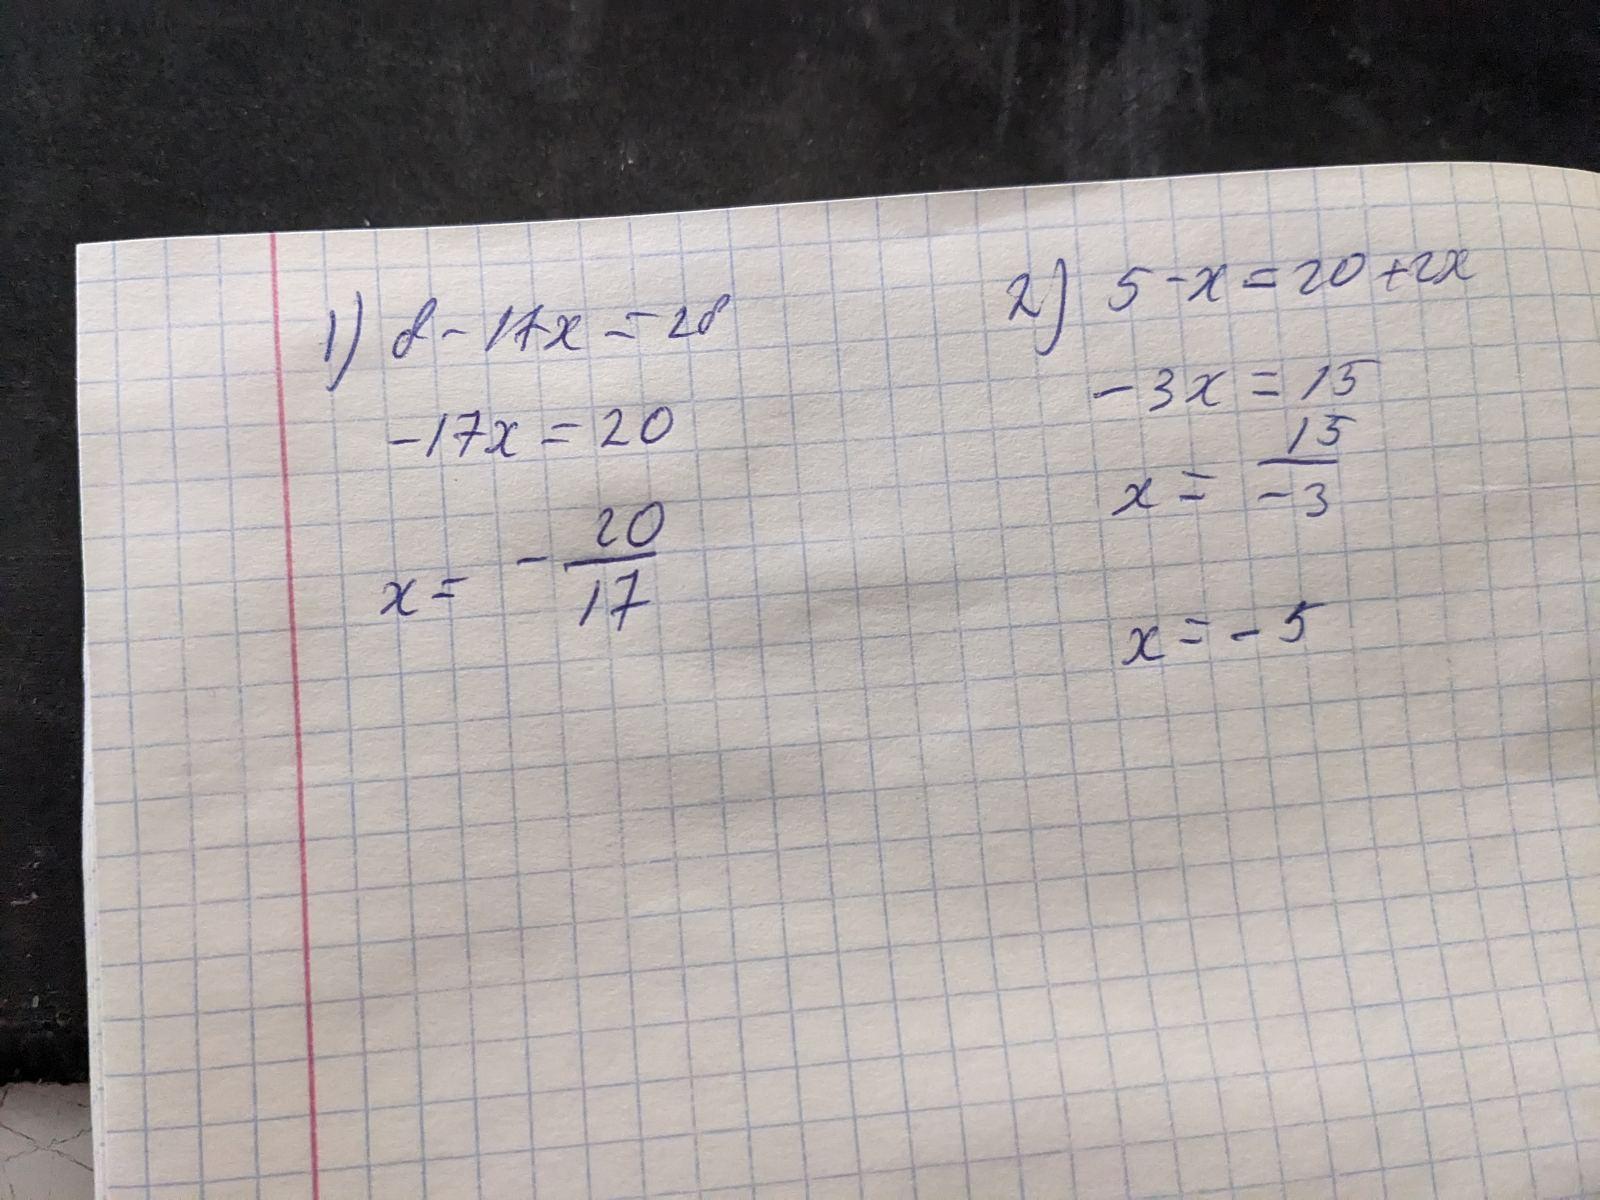 1) 8 - 17x = 28
-17x = 20
x = - 20/17
2) 5 - x = 20 + 2x
-3x = 15
x = 15/-3
x = -5